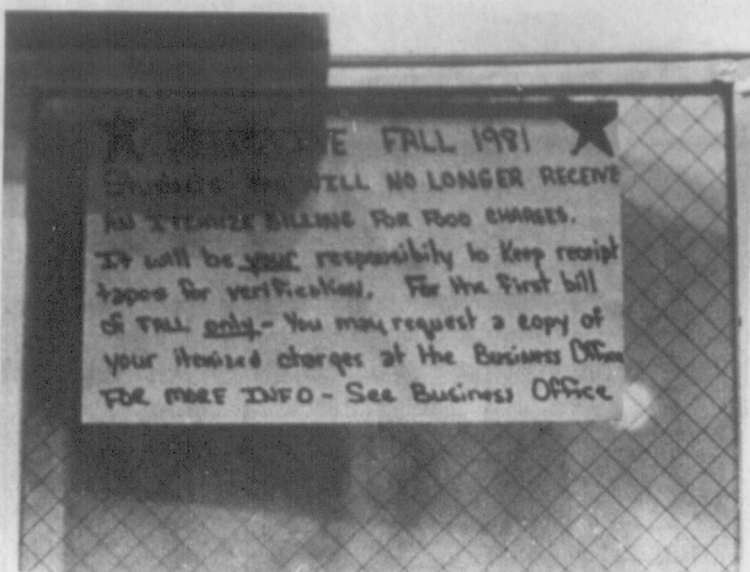 EFFECTIVE FALL 1981
STUDENTS YOU WILL NO LONGER RECEIVE
AN ITEMIZE BILLING FOR FOOD CHARGES.
It will be your responsibility to Keep receipt
tapes for verification. For the First bill
of FALL only - You may request a copy of
your itemized charges at the Business Office
FOR MORE INFO - See Business Office